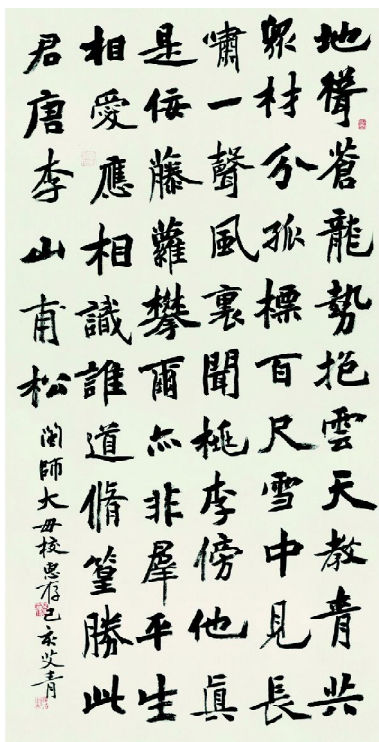 地聳蒼龍勢抱雲天教青共
眾材分孤標百尺雪中見長
嘯一聲風裏聞桃李傍他眞
是佞藤蘿攀爾亦非羣平生
相愛應相識誰道脩篁勝此
君唐李山甫松
閩師大母校惠存己亥艾青